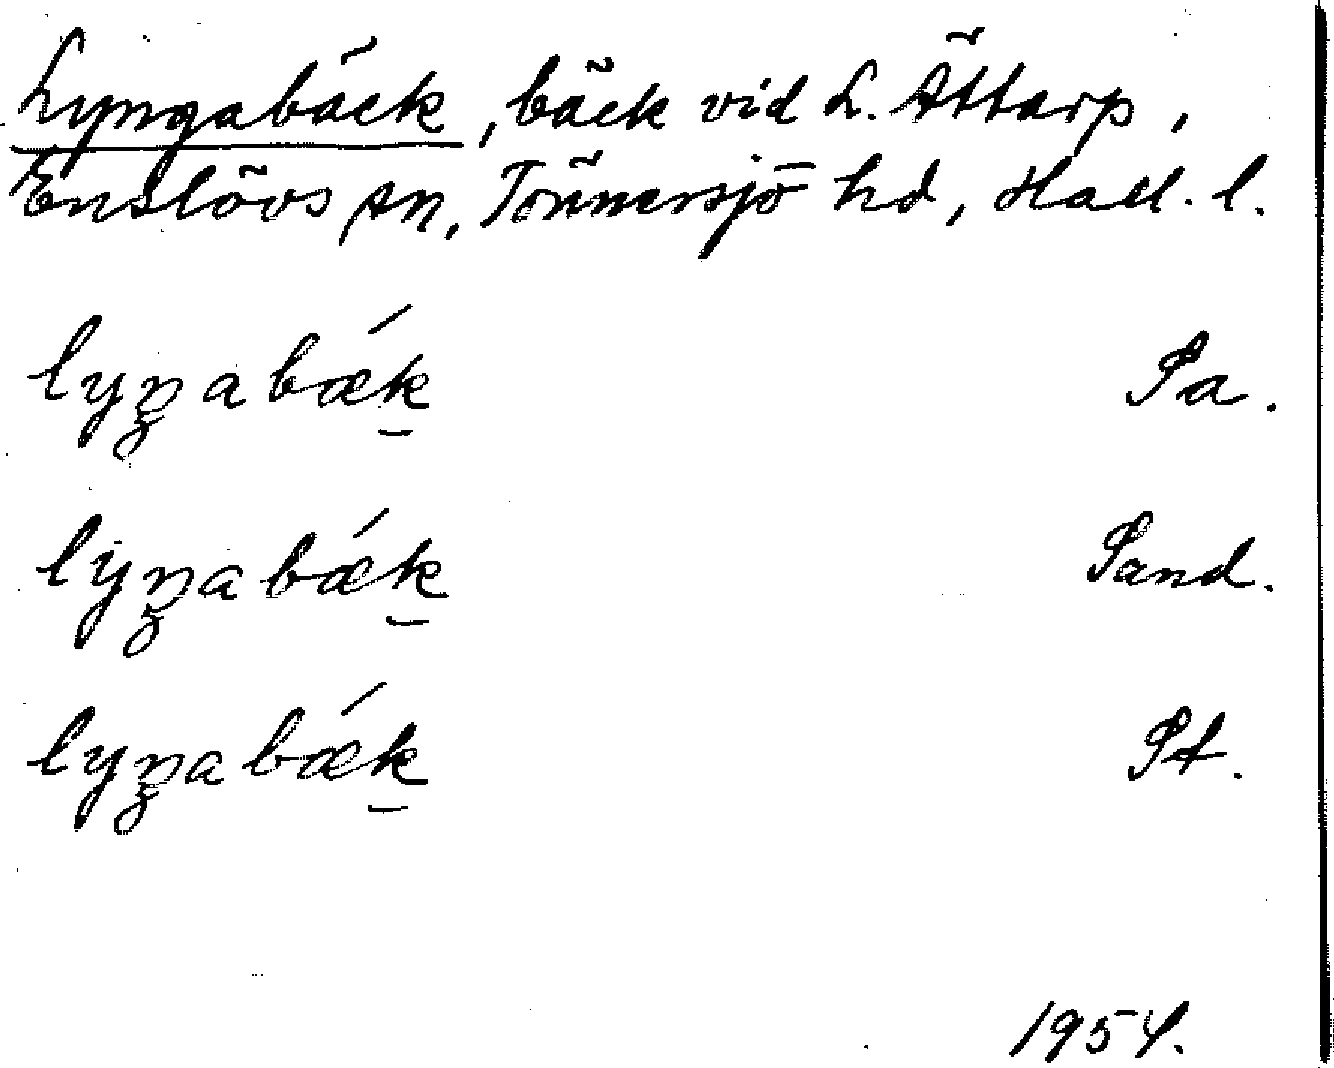 Lyngabäck, bäck vid L. Ättarp,
Enslövs sn, Tönnersjö hd, Hall. l.
lyŋabǽk̲ Pa.
lyŋabǽk̲ Sand.
lyŋabǽk̲ St.
1954.